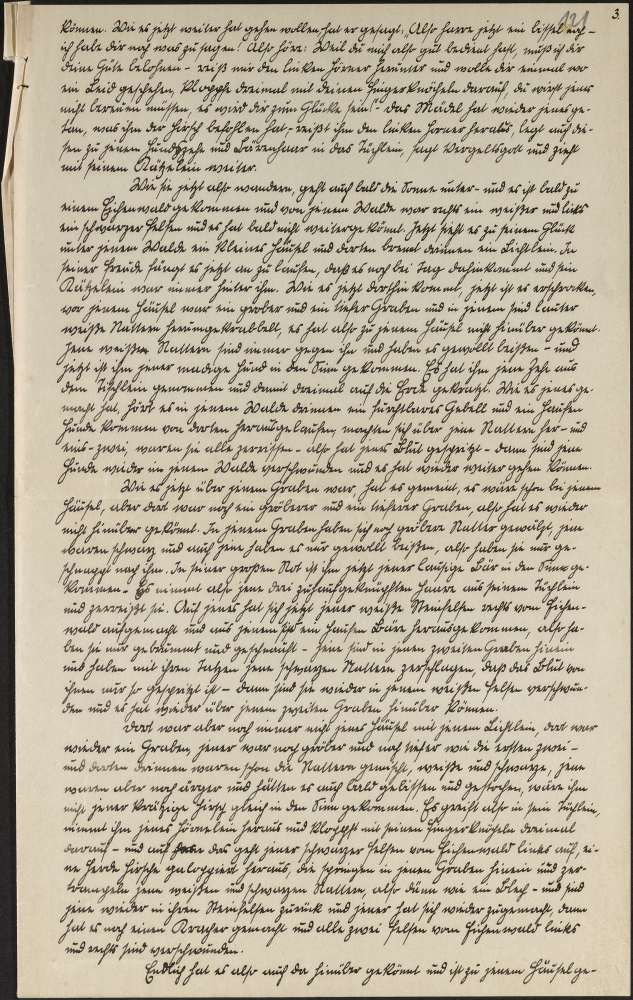 3.
121
können. Wie es jetzt weiter hat gehen wollen hat er gesagt: Also harre jetzt ein bissel auf –
ich habe dir noch was zu sagen! Also höre: Weil du mich also gut bedient hast, muß ich dir
deine Güte belohnen – reiß mir den linken Hörner herunter und wolle dir einmal wo
ein Leid geschehen, klopfe dreimal mit deinen Fingerknöcheln darauf, du wirst jenes
nicht bereuen müssen, es wird dir zum Glücke sein! – Das Mädel hat wieder jenes ge-
tan, was ihm der Hirsch befohlen hat, – reißt ihm den linken Horner heraus, legt auch die-
sen zu jenem Hundszehe und Bärenhaar in das Tüchlein, sagt Vergeltsgott und zieht
mit seinem Kätzelein weiter.
Wie sie jetzt also wandern, geht auch bald die Sonne unter – und es ist bald zu
einem Eichenwald gekommen und von jenem Walde war rechts ein weißer und links
ein schwarzer Felsen und es hat bald nicht weiter gekönnt. Jetzt sieht es zu seinem Glück
unter jenem Walde ein kleines Häusel und dorten brennt drinnen ein Lichtlein. In
seiner Freude fangt es jetzt an zu laufen, daß es noch bei Tag dahinkommt und sein
Kätzelein war immer hinter ihm. Wie es jetzt dorthin kommt, jetzt ist es erschrocken,
vor jenem Häusel war ein grober und ein tiefer Graben und in jenem sind lauter
weiße Nattern herumgekrabbelt, es hat also zu jenem Häusel nicht hinüber gekönnt.
Jene weißen Nattern sind immer gegen ihn und haben es gewollt beißen – und
jetzt ist ihm jener madige Hund in den Sinn gekommen. Es hat ihm jene Zehe aus
dem Tüchlein genommen und damit dreimal auf die Erde gekratzt. Wie es jenes ge-
macht hat, hört es in jenem Walde drinnen ein furchtbares Gebell und ein Haufen
Hunde kommen von dorten herausgelaufen, machten sich über jene Nattern her – und
eins – zwei, waren sie alle zerrissen – also hat jenes Blut gespritzt – dann sind jene
Hunde wieder in jenem Walde verschwunden und es hat wieder weiter gehen können.
Wie es jetzt über jenem Graben war, hat es gemeint, es wäre schon bei jenem
Häusel, aber dort war noch ein gröberer und ein tieferer Graben, also hat es wieder
nicht hinüber gekönnt. In jenem Graben haben sich noch gröbere Nattern gewälzt, jene
waren schwarz und auch jene haben es nur gewollt beißen, also haben sie nur ge-
schnappt nach ihm. In seiner großen Not ist ihm jetzt jener lausige Bär in den Sinn ge-
kommen – Es nimmt also jene drei zusammengeknüpften Haare aus seinem Tüchlein
und zerreißt sie. Auf jenes hat sich jetzt jener weiße Steinfelsen rechts vom Eichen-
wald aufgemacht und aus jenem ist ein Haufen Bäre herausgekommen, also ha-
ben sie nur gebrummt und geschnauft – jene sind in jenen zweiten Graben hinein
und haben mit ihren Tatzen jene schwarzen Nattern zerschlagen, daß das Blut von
ihnen nur so gespritzt ist – dann sind sie wieder in jenem weißen Felsen verschwun-
den und es hat wieder über jenem zweiten Graben hinüber können.
Dort war aber noch immer nicht jenes Häusel mit jenem Lichtlein, dort war
wieder ein Graben, jener war noch gröber und noch tiefer wie die ersten zwei –
und dorten drinnen waren schon die Nattern gemischt, weiße und schwarze, jene
waren aber noch ärger und hätten es auch bald gebissen und gestochen, wäre ihm
nicht jener krätzige Hirsch gleich in den Sinn gekommen. Es greift also in sein Tüchlein,
nimmt ihm jenes Hörnelein heraus und klopft mit seinen Fingerknöcheln dreimal
darauf – und auf das geht jener schwarzer Felsen vom Eichenwald links auf, ei-
ne Herde Hirsche galoppiert heraus, die sprangen in jenen Graben hinein und zer-
trampeln jene weißen und schwarzen Nattern, also dünn wie ein Blech – und sind
jene wieder in ihren Steinfelsen zurück und jener hat sich wieder zugemacht, dann
hat es noch einen Kracher gemacht und alle zwei Felsen vom Eichenwald links
und rechts sind verschwunden.
Endlich hat es also auch da hinüber gekönnt und ist zu jenem Häusel ge-